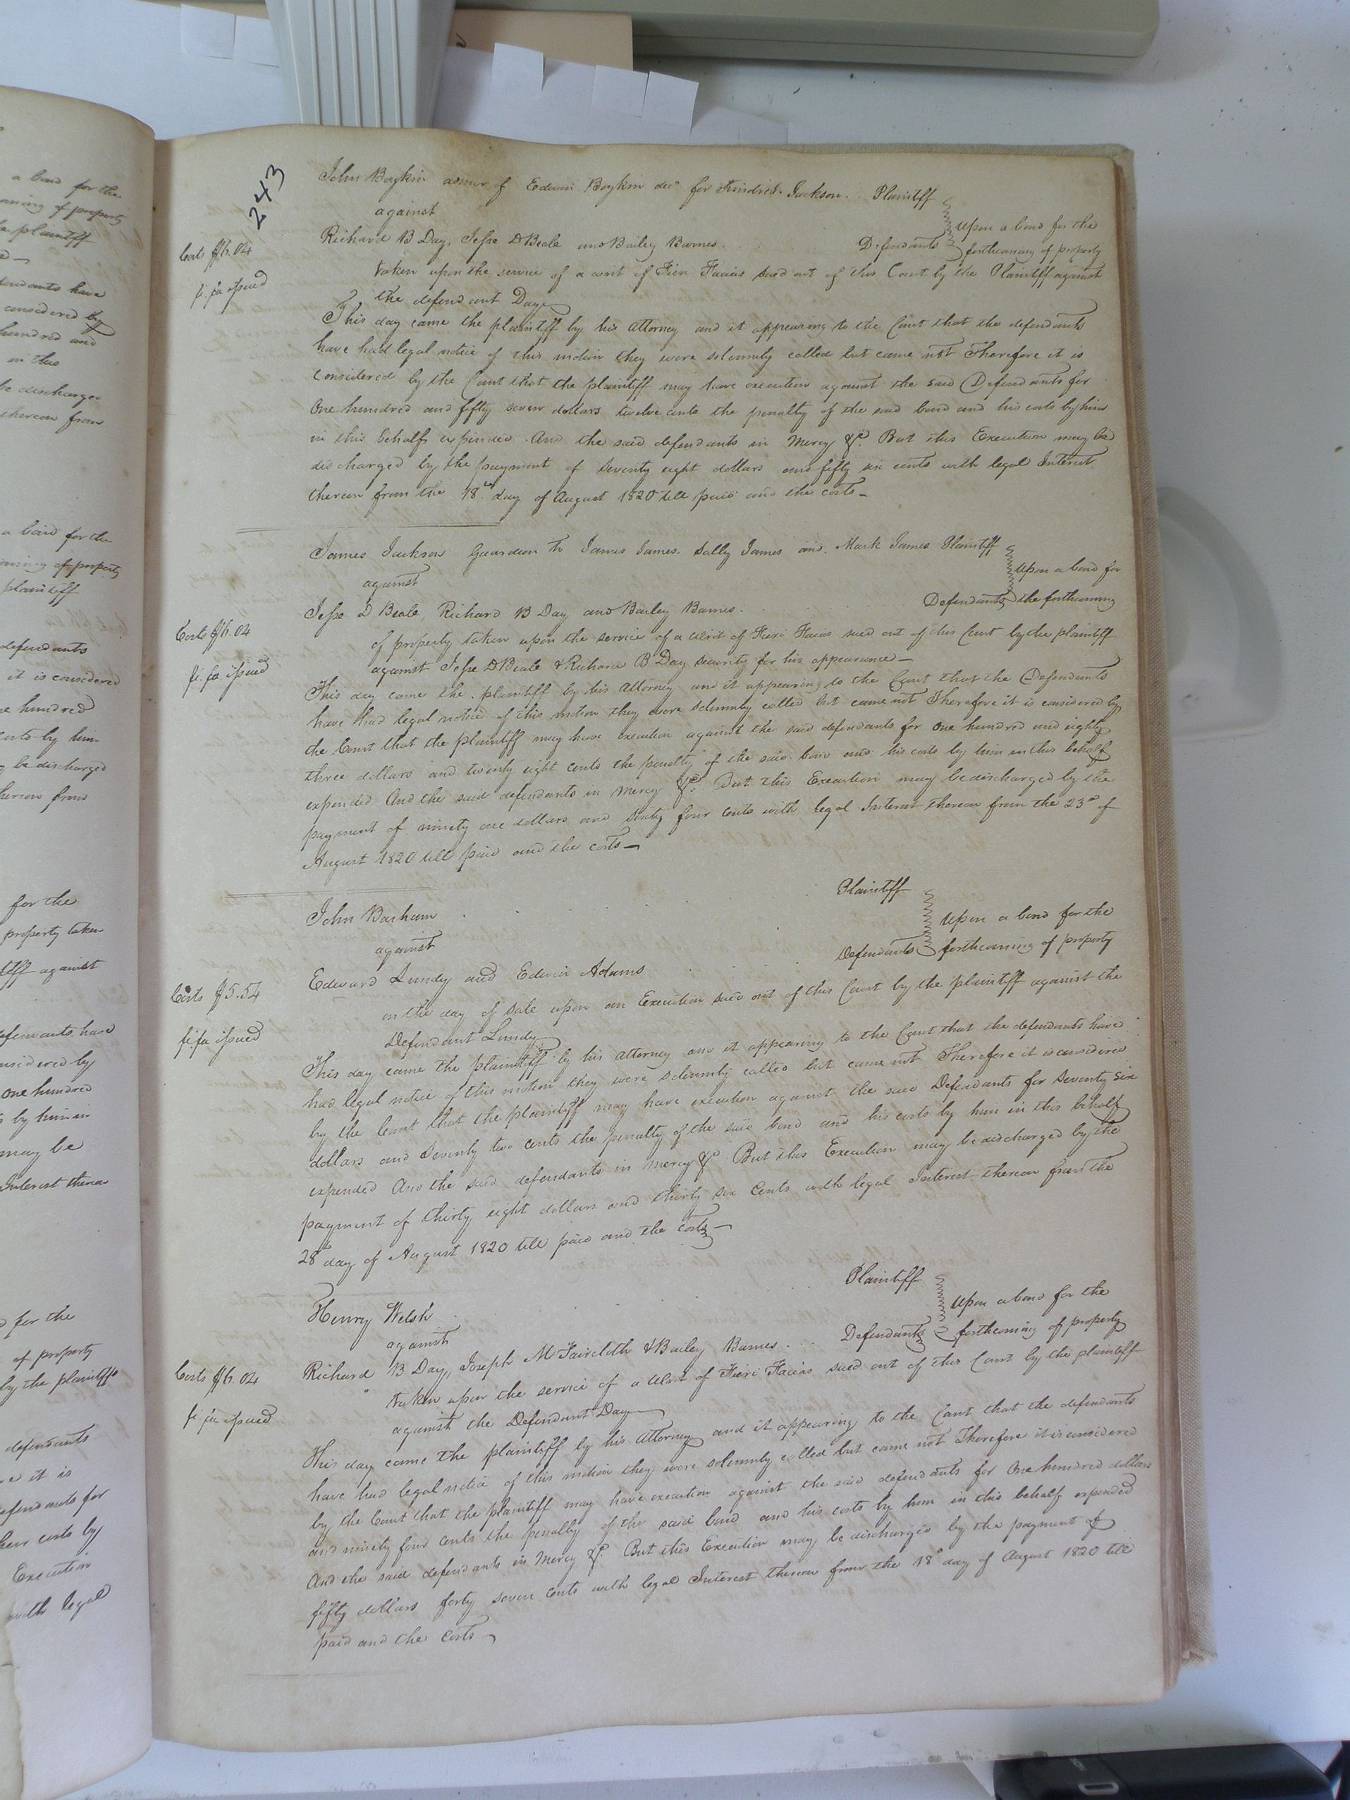 243
John Boykin admor of Edwin Boykin decd for Jackson. Plaintiff
against
Richard B Day, Jesse D Beale and Bailey Barnes. Defendants
Upon a bond for the
forthcoming of property
Costs $6.04
fi. fa issued
taken upon the service of a writ of Fieri Facias sued out of this Court by the Plaintiff against
the defendant Day
This day came the plaintiff by his attorney and it appearing to the Court that the defendants
have had legal notice of this motion they were solemnly called but came not Therefore it is
Considered by the Court that the plaintiff may have execution against the said Defendants for
One hundred and fifty seven dollars twelve cents the penalty of the said bond and his costs by him
in this behalf expended. And the said defendants in Mercy &c. But this Execution may be
discharged by the payment of Seventy eight dollars and fifty six cents with legal Interest
thereon from the 18th day of August 1820 till paid and the costs—
James Jackson Guardian to James James. Sally James and. Mark James Plaintiff
against
Jesse D Beale, Richard B Day and Bailey Barnes. Defendants
Upon a bond for
the forthcoming
Costs $6.04
fi. fa issued
of property taken upon the service of a Writ of Fieri Facias sued out of this Court by the plaintiff
against Jesse D Beale & Richard B Day security for his appearance—
This day came the plaintiff by his Attorney and it appearing to the Court that the Defendants
have had legal notice of this motion they were solemnly called but came not Therefore it is considered by
the Court that the plaintiff may have execution against the said defendants for One hundred and eighty
three dollars and twenty eight cents the penalty of the said bond and his costs by him in this behalf
expended And the said defendants in Mercy &c. But this Execution may be discharged by the
payment of ninety one dollars and sixty four Cents with legal Interest thereon from the 23d of
August 1820 till paid and the costs—
John Barham Plaintiff
against
Edward Lundy and Edwin Adams Defendants
Upon a bond for the
forthcoming of property
Costs $5.54
fi. fa issued
on the day of sale upon an Execution sued out of this Court by the plaintiff against the
Defendant Lundy
This day came the Plaintiff by his attorney and it appearing to the Court that the defendants have
had legal notice of this motion they were solemnly called but came not Therefore it is considered
by the Court that the plaintiff may have execution against the said Defendants for Seventy six
dollars and Seventy two cents the penalty of the said bond and his costs by him in this behalf
expended And the said defendants in mercy &c But this Execution may be discharged by the
payment of thirty eight dollars and thirty six Cents with legal Interest thereon from the
28th day of August 1820 till paid and the costs—
Henry Welsh Plaintiff
against
Richard B Day, Joseph M Faircloth & Bailey Barnes. Defendants
Upon a bond for the
forthcoming of property
Costs $6.04
fi. fa issued
taken upon the service of a Writ of Fieri Facias sued out of this Court by the plaintiff
against the Defendant Day
This day came the plaintiff by his Attorney and it appearing to the Court that the defendants
have had legal notice of this motion they were solemnly called but came not Therefore it is considered
by the Court that the plaintiff may have execution against the said defendants for One hundred dollars
and ninety four Cents the penalty of the said bond and his costs by him in this behalf expended
And the said defendants in Mercy &c. But this Execution may be discharged by the payment of
fifty dollars forty seven cents with legal Interest thereon from the 18th day of August 1820 till
paid and the costs—